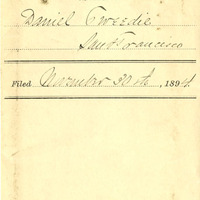 Daniel Tweedie
San Francisco
Filed November 30th, 1894